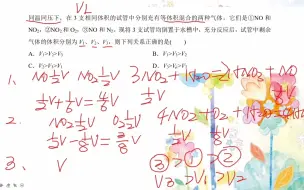 V_L
同温同压下，在3支相同体积的试管中分别充有等体积混合的两种气体，它们是①NO和
NO₂，②NO₂和O₂，③NH₃和N₂。现将3支试管均倒置于水槽中，充分反应后，试管中剩余
气体的体积分别为V₁、V₂、V₃，则下列关系正确的是(
A．V₁>V₂>V₃
C．V₂>V₃>V₁
1、NO ½V NO₂ ½V 3NO₂+H₂O=2HNO₃+NO
½V
½V+
V=
V
2、NO₂ ½V O₂ ½V 4NO₂+O₂+
½V
½V-⅛V=⅜V
3、 V
③>①>②
V₃>V₁>V₂